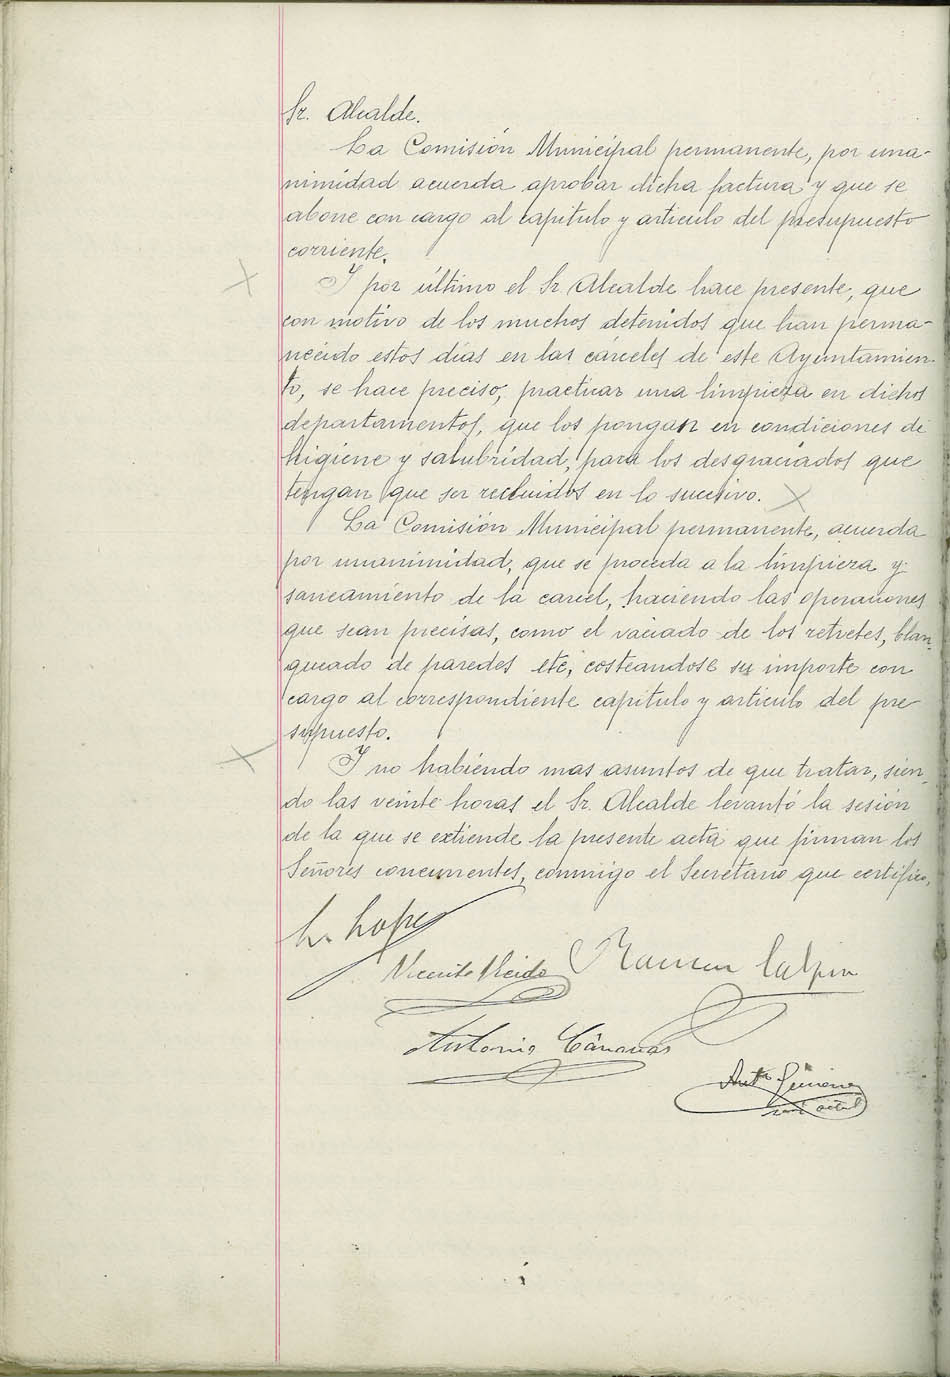 Sr. Alcalde.
La Comisión Municipal permanente, por una-
nimidad acuerda aprobar dicha factura y que se
abone con cargo al capitulo y articulo del presupuesto
corriente.
Y por último el Sr. Alcalde hace presente, que
con motivo de los muchos detenidos que han perma-
necido estos días en las cárceles de este Ayuntamien-
to, se hace preciso, practicar una limpieza en dichos
departamentos, que los pongan en condiciones de
higiene y salubridad, para los desgraciados que
tengan que ser recluidos en lo sucesivo.
La Comisión Municipal permanente, acuerda
por unanimidad, que se proceda a la limpieza y
saneamiento de la carcel, haciendo las operaciones
que sean precisas, como el vaciado de los retretes, blan-
queado de paredes etc, costeandose su importe con
cargo al correspondiente capitulo y articulo del pre-
supuesto.
Y no habiendo mas asuntos de que tratar, sien-
do las veinte horas el Sr. Alcalde levantó la sesión
de la que se extiende la presente acta que firman los
Señores concurrentes, conmigo el Secretario que certifico,
Lopez
Vicente Ramon
Antonio Cánovas